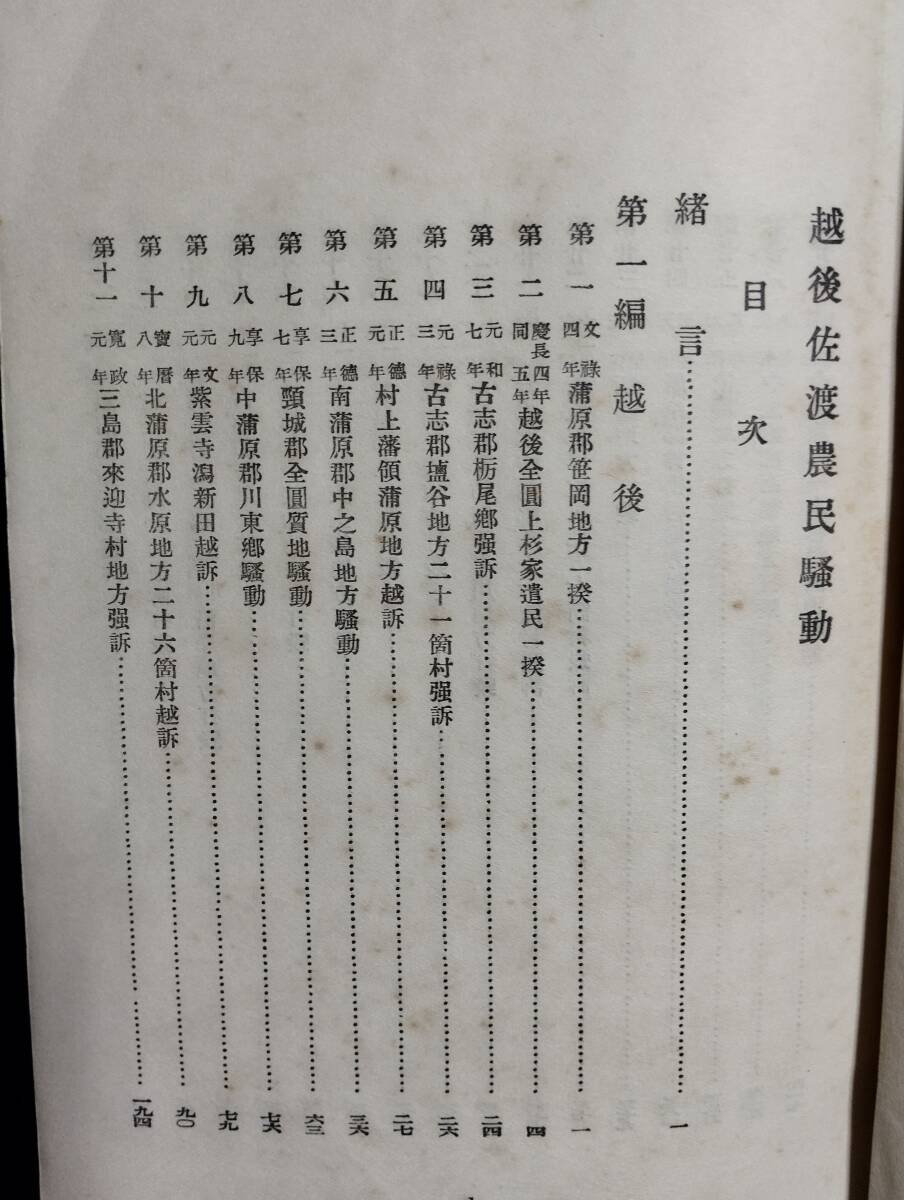 越後佐渡農民騒動
目次
緒言……一
第一編 越後
第一 文祿四年 蒲原郡笹岡地方一揆……一
第二 慶長四年同五年 越後全圓上杉家遺民一揆……四
第三 元和七年 古志郡栃尾鄕强訴……二四
第四 元祿三年 古志郡塩谷地方二十一箇村强訴……二六
第五 正德元年 村上藩領蒲原地方越訴……二七
第六 正德三年 南蒲原郡中之島地方騷動……三六
第七 享保七年 頸城郡全圓質地騷動……六三
第八 享保九年 中蒲原郡川東鄕騷動……七六
第九 元文元年 紫雲寺潟新田越訴……七九
第十 寶曆八年 北蒲原郡水原地方二十六箇村越訴……九〇
第十一 寬政元年 三島郡來迎寺村地方强訴……一九四